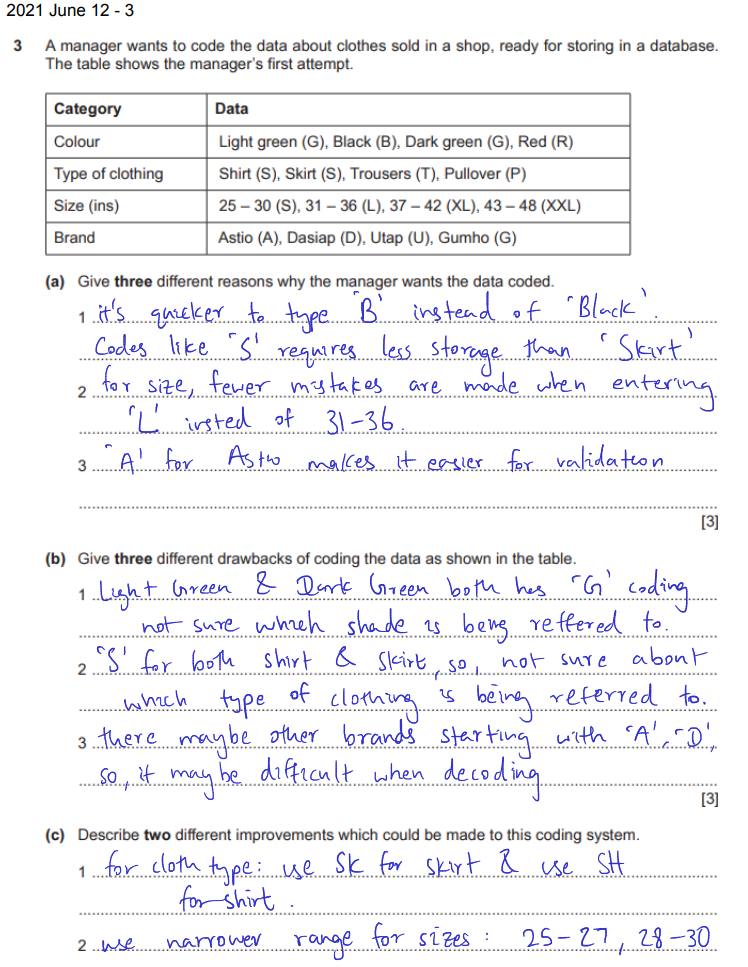 2021 June 12 - 3
3 A manager wants to code the data about clothes sold in a shop, ready for storing in a database.
The table shows the manager's first attempt.
Category Data
Colour Light green (G), Black (B), Dark green (G), Red (R)
Type of clothing Shirt (S), Skirt (S), Trousers (T), Pullover (P)
Size (ins) 25 – 30 (S), 31 – 36 (L), 37 – 42 (XL), 43 – 48 (XXL)
Brand Astio (A), Dasiap (D), Utap (U), Gumho (G)
(a) Give three different reasons why the manager wants the data coded.
1 it's quicker to type "B' instead of "Black'.
Codes like "S' requires less storage than 'Skirt'
2 for size, fewer mistakes are made when entering
"L' insted of 31-36.
3 "A' for Astio makes it easier for validation
[3]
(b) Give three different drawbacks of coding the data as shown in the table.
1 Light Green & Dark Green both has "G' coding
not sure which shade is being reffered to.
2 "S' for both shirt & skirt, so, not sure about
which type of clothing is being referred to.
3 there maybe other brands starting with "A', "D',
so, it may be difficult when decoding
[3]
(c) Describe two different improvements which could be made to this coding system.
1 for cloth type: use SK for skirt & use SH
for shirt.
2 use narrower range for sizes : 25-27, 28-30